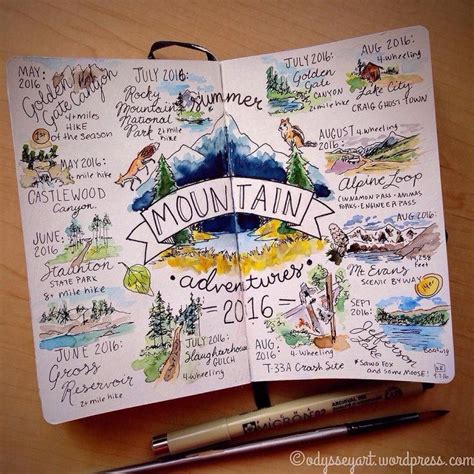 MAY 2016:
Golden
Gate Canyon
4+ miles
HIKE
1st of the Season
MAY 2016:
2+ mile hike
CASTLEWOOD
Canyon
JUNE 2016:
Staunton
STATE PARK
8+ mile hike
JUNE 2016:
Gross
Reservoir
2 mile hike
JULY 2016:
Rocky
Mountain
National
Park 2+ mile
hike
summer
MOUNTAIN
adventures
= 2016 =
JULY 2016:
Slaughterhouse
GULCH
4-Wheeling
AUG 2016:
4-Wheeling
T-33A Crash Site
JULY 2016:
Golden
Gate
CANYON
2+ mile hike
AUG 2016:
4-wheeling
Lake City
CRAIG GHOST TOWN
AUGUST 4-wheeling
2016:
Alpine Loop
CINNAMON PASS - ANIMAS
FORKS - ENGINEER PASS
AUG 2016:
14,258
feet
Mt. Evans
SCENIC BYWAY
SEPT
2016:
Jefferson
Lake
Boating
* SAW FOX
and some MOOSE!
MICRON
©odysseyart.wordpress.com